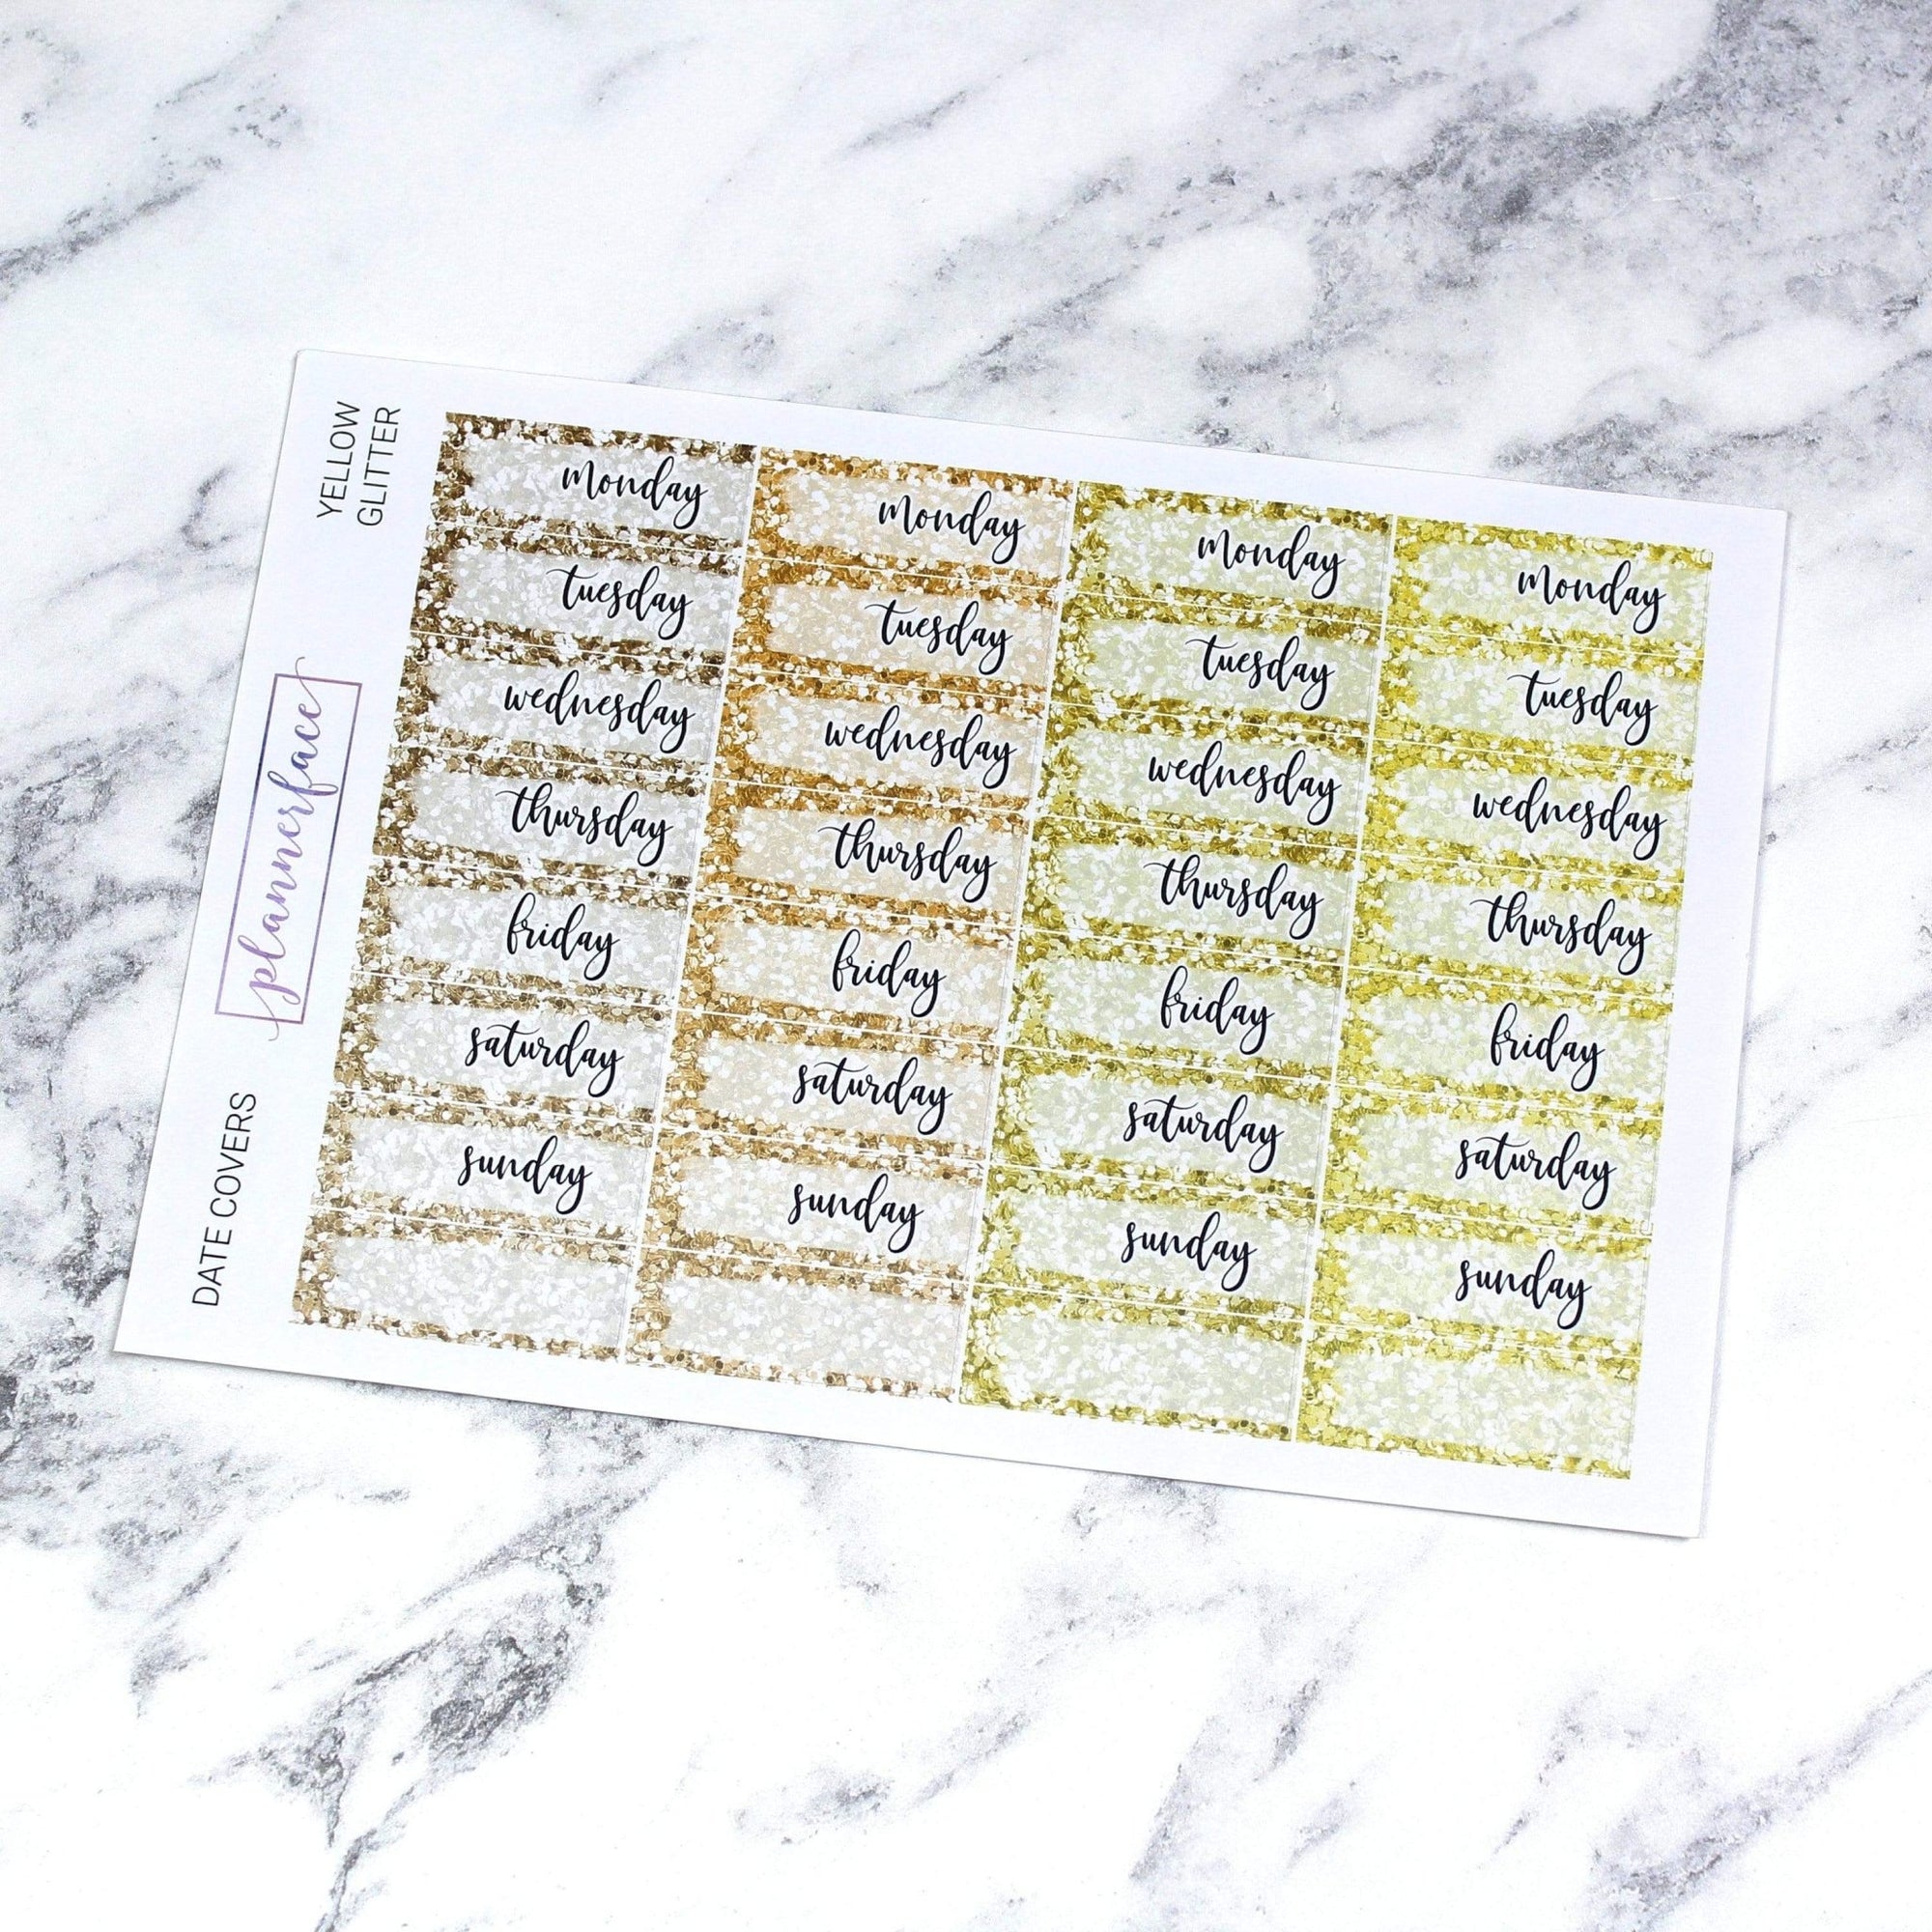 YELLOW
GLITTER
plannerface
DATE COVERS
monday
tuesday
wednesday
thursday
friday
saturday
sunday
monday
tuesday
wednesday
thursday
friday
saturday
sunday
monday
tuesday
wednesday
thursday
friday
saturday
sunday
monday
tuesday
wednesday
thursday
friday
saturday
sunday